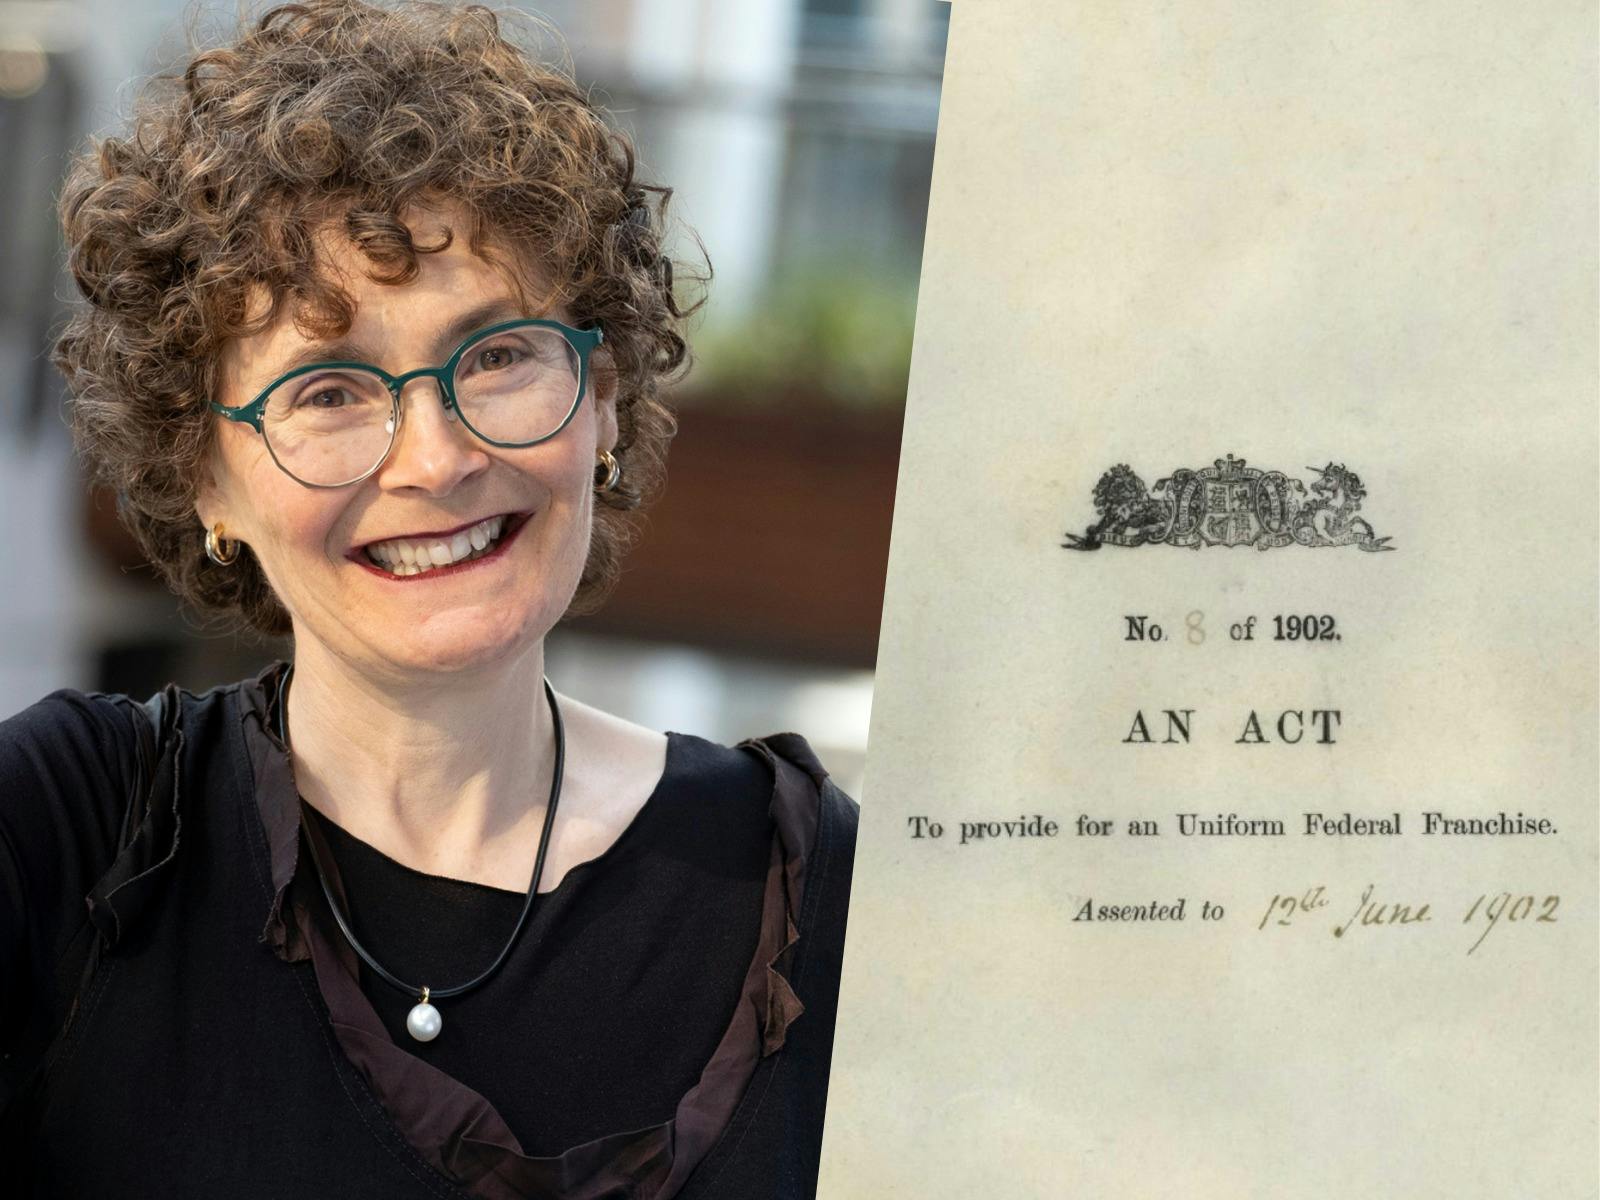 No. 8 of 1902.
AN ACT
To provide for an Uniform Federal Franchise.
Assented to 12th June 1902